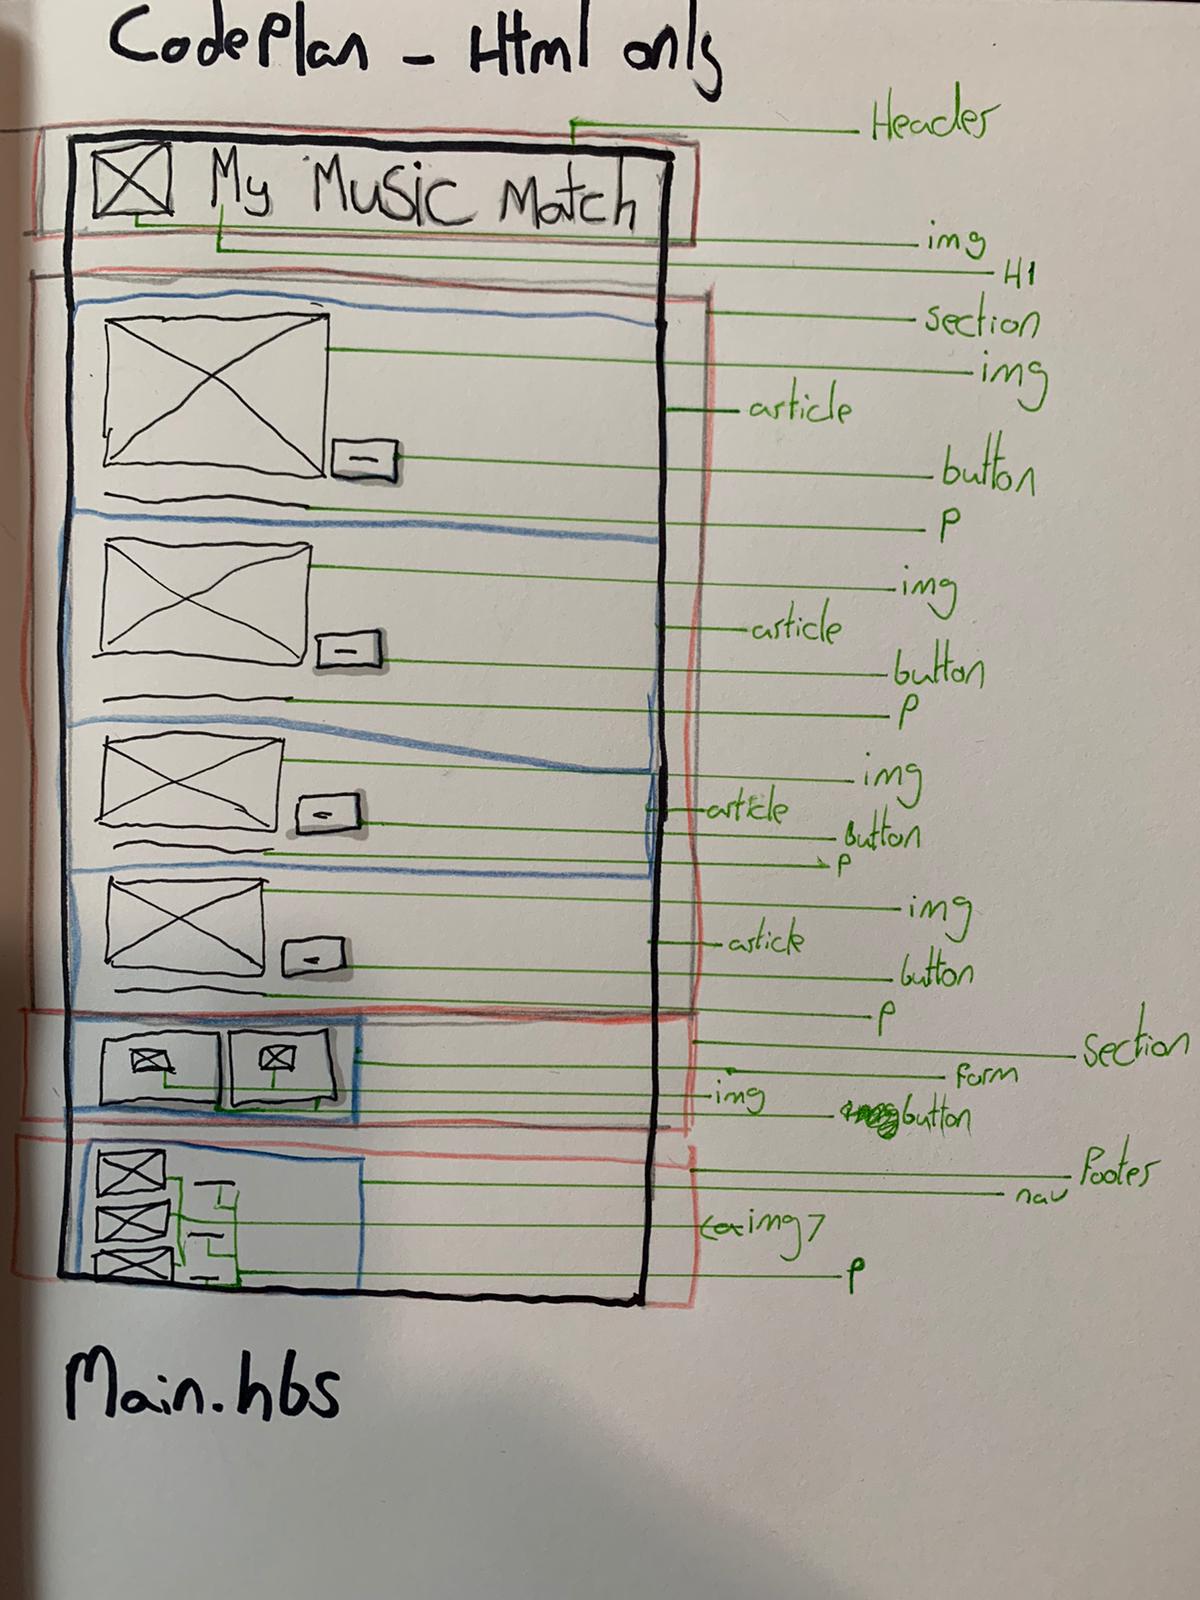 CodePlan - Html only
Header
My Music Match
img
H1
section
img
article
button
p
img
article
button
p
img
article
Button
p
img
article
button
p
section
form
img
button
Footer
nav
<a img>
p
Main.hbs